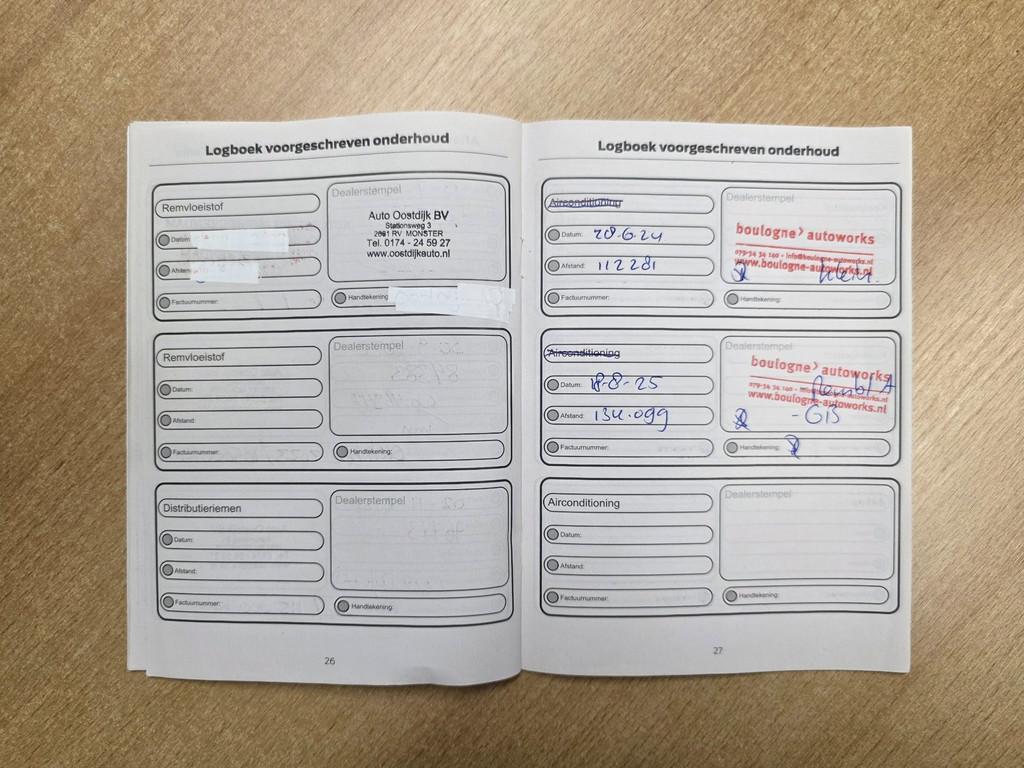 Logboek voorgeschreven onderhoud
Remvloeistof
Datum:
Afstand:
Factuurnummer:
Dealerstempel
Auto Oostdijk BV
Stationsweg 3
2681 RV MONSTER
Tel. 0174 - 24 59 27
www.oostdijkauto.nl
Handtekening:
Remvloeistof
Datum:
Afstand:
Factuurnummer:
Dealerstempel
Handtekening:
Distributieriemen
Datum:
Afstand:
Factuurnummer:
Dealerstempel
Handtekening:
26
Logboek voorgeschreven onderhoud
Airconditioning
Datum: 28-6-24
Afstand: 112281
Factuurnummer:
Dealerstempel
boulogne> autoworks
079-34 34 140 - info@boulogne-autoworks.nl
www.boulogne-autoworks.nl
Handtekening:
Airconditioning
Datum: 18-8-25
Afstand: 134.099
Factuurnummer:
Dealerstempel
boulogne> autoworks
www.boulogne-autoworks.nl
Handtekening:
Airconditioning
Datum:
Afstand:
Factuurnummer:
Dealerstempel
Handtekening:
27